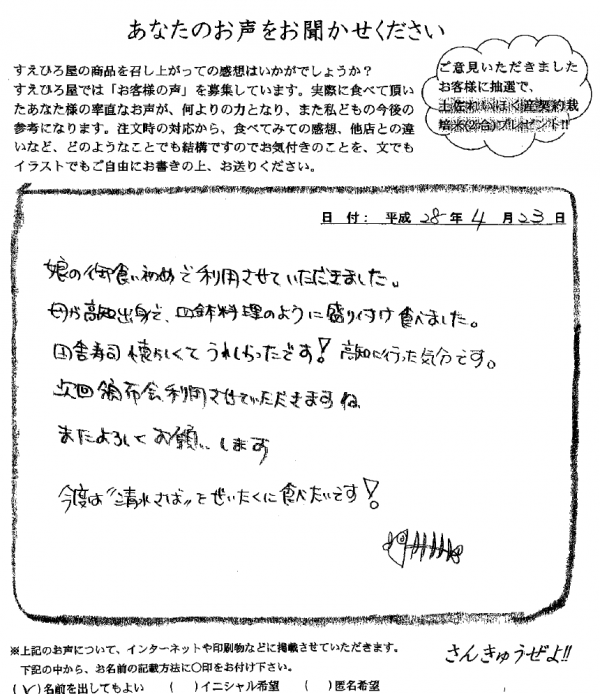 あなたのお声をお聞かせください
すえひろ屋の商品を召し上がっての感想はいかがでしょうか?
すえひろ屋では「お客様の声」を募集しています。実際に食べて頂い
たあなた様の率直なお声が、何よりの力となり、また私どもの今後の
参考になります。注文時の対応から、食べてみての感想、他店との違
いなど、どのようなことでも結構ですのでお気付きのことを、文でも
イラストでもご自由にお書きの上、お送りください。
ご意見いただきました
お客様に抽選で、
土佐れいほく産契約栽
培米(2合)プレゼント!!
日 付: 平成 28 年 4 月 23 日
娘のお食い初めで利用させていただきました。
母が高知出身で、皿鉢料理のように盛り付け食べました。
田舎寿司懐かしくてうれしかったです! 高知に行った気分です。
次回頒布会利用させていただきますね
またよろしくお願いします
今度は"清水さば"をぜいたくに食べたいです!
※上記のお声について、インターネットや印刷物などに掲載させていただきます。
下記の中から、お名前の記載方法に○印をお付け下さい。
(✓)名前を出してもよい ( )イニシャル希望 ( )匿名希望
さんきゅうぜよ!!